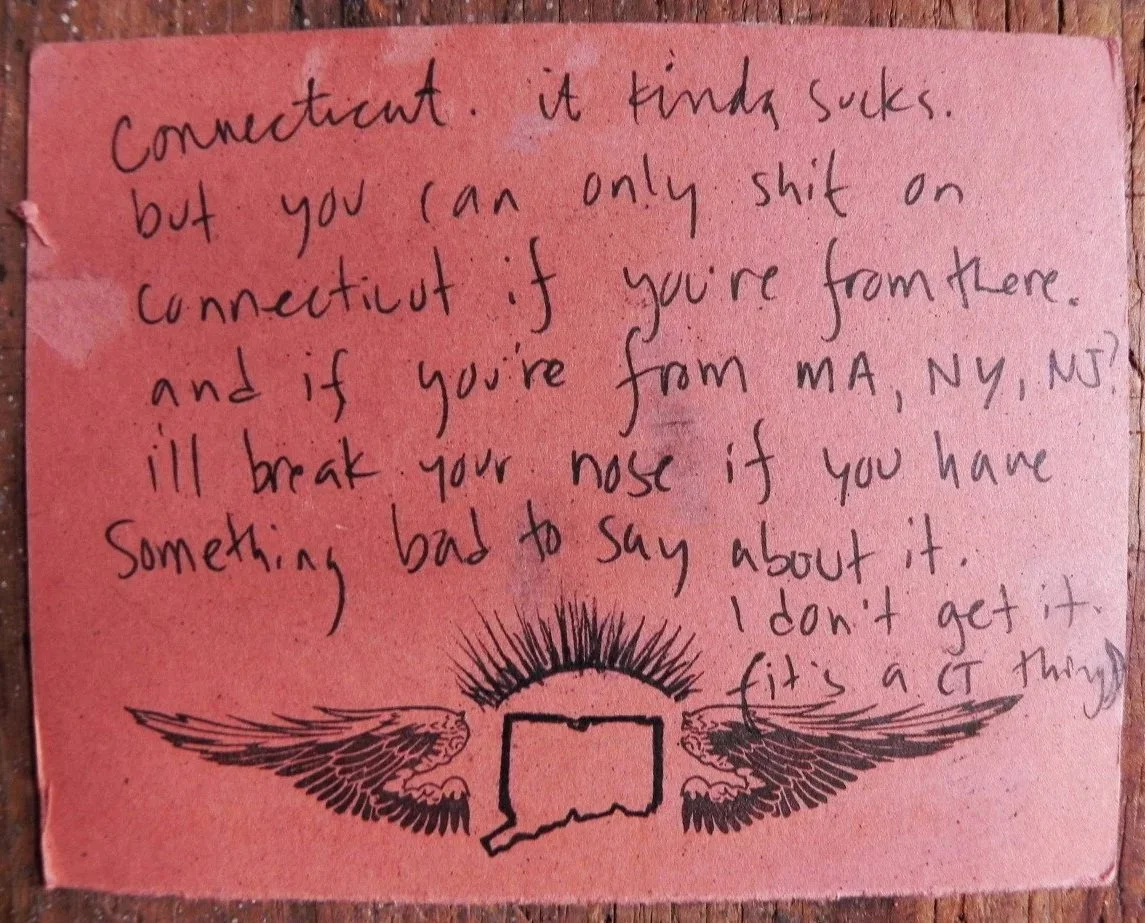 Connecticut. it kinda sucks.
but you can only shit on
connecticut if you're from there.
and if you're from MA, NY, NJ?
ill break your nose if you have
Something bad to say about it.
I don't get it.
(it's a CT thing)